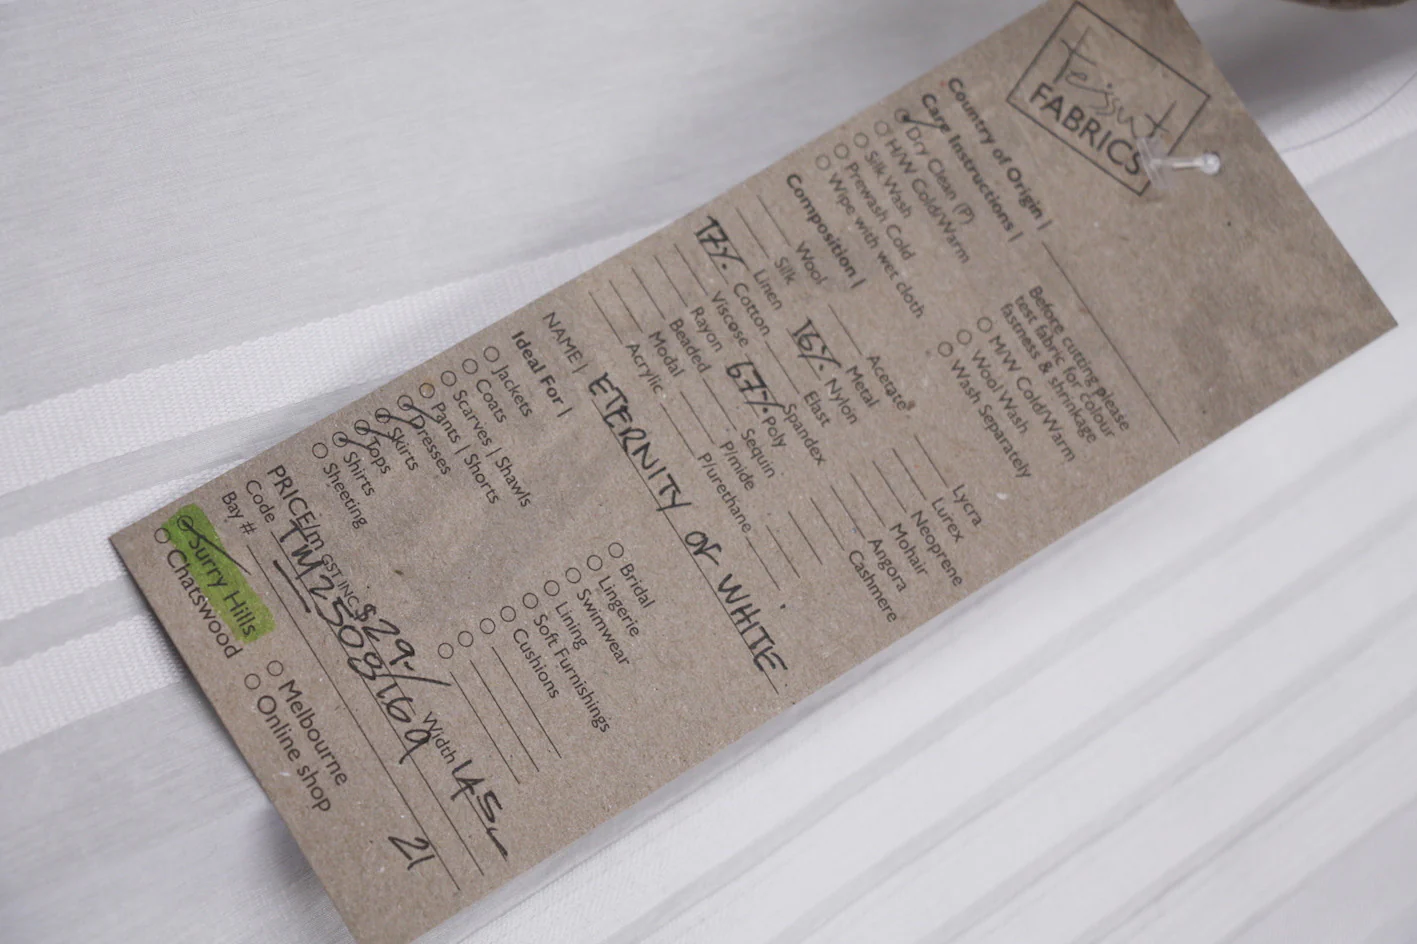 Tessuti
FABRICS
Country of Origin |
Care Instructions |
Dry Clean (P)
H/W Cold/Warm
Silk Wash
Prewash Cold
Wipe with wet cloth
Before cutting please
test fabric for colour
fastness & shrinkage
M/W Cold/Warm
Wool Wash
Wash Separately
Composition |
Wool
Silk
Linen
17% Cotton
Viscose
Rayon
Beaded
Modal
Acrylic
Acetate
Metal
16% Nylon
Elast
Spandex
67% Poly
Sequin
P/mide
P/urethane
Lycra
Lurex
Neoprene
Mohair
Angora
Cashmere
NAME | ETERNITY OF WHITE
Ideal For |
Jackets
Coats
Scarves | Shawls
Pants | Shorts
Dresses
Skirts
Tops
Shirts
Sheeting
Bridal
Lingerie
Swimwear
Lining
Soft Furnishings
Cushions
PRICE/m GST INC $29-/ Width 145
Code TM2508169
Bay # 21
Surry Hills
Chatswood
Melbourne
Online shop